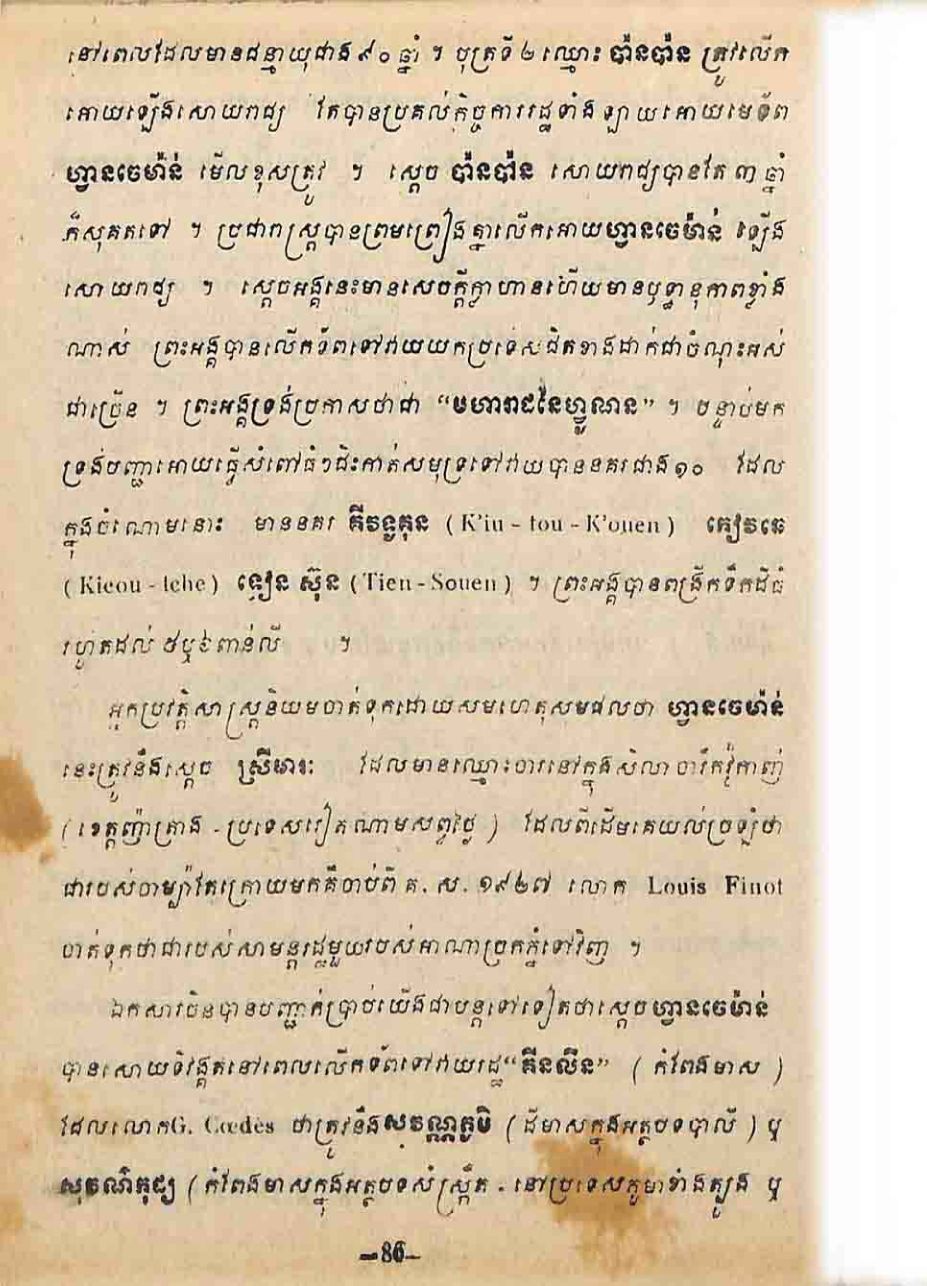 នៅពេលដែលមានជន្មាយុជាង ៩០ ឆ្នាំ ។ បុត្រទី ២ ឈ្មោះ ប៉ានប៉ាន ត្រូវលើក
អោយឡើងសោយរាជ្យ តែបានប្រគល់កិច្ចការរដ្ឋទាំងឡាយអោយមេទ័ព
ហ្វានចេម៉ាន់ មើលខុសត្រូវ ។ ស្តេច ប៉ានប៉ាន សោយរាជ្យបានតែ ៣ ឆ្នាំ
ក៏សុគតទៅ ។ ប្រជារាស្ត្របានព្រមព្រៀងគ្នាលើកអោយហ្វានចេម៉ាន់ ឡើង
សោយរាជ្យ ។ ស្តេចអង្គនេះមានសេចក្តីក្លាហានហើយមានឫទ្ធានុភាពខ្លាំង
ណាស់ ព្រះអង្គបានលើកទ័ពទៅវាយយកប្រទេសជិតខាងដាក់ជាចំណុះអស់
ជាច្រើន ។ ព្រះអង្គទ្រង់ប្រកាសថាជា “មហារាជនៃហ្វូណន” ។ បន្ទាប់មក
ទ្រង់បញ្ជាអោយធ្វើសំពៅធំៗជិះកាត់សមុទ្រទៅវាយបាននគរជាង ១០ ដែល
ក្នុងចំណោមនោះ មាននគរ គីវទូគុន ( K’iu - tou - K’ouen ) គៀវឆេ
( Kieou - tche ) ទៀន ស៊ុន ( Tien - Souen ) ។ ព្រះអង្គបានពង្រីកទឹកដីធំ
រហូតដល់ ៥ឬ៦ពាន់លី ។
អ្នកប្រវត្តិសាស្ត្រនិយមចាត់ទុកដោយសមហេតុសមផលថា ហ្វានចេម៉ាន់
នេះត្រូវនឹងស្តេច ស្រីមារៈ ដែលមានឈ្មោះចារនៅក្នុងសិលាចារឹកវ៉ូកាញ់
( ខេត្តញ៉ាត្រាង - ប្រទេសវៀតណាមសព្វថ្ងៃ ) ដែលពីដើមគេយល់ច្រឡំថា
ជារបស់ចាម្ប៉ាតែក្រោយមកគឺចាប់ពី គ. ស. ១៩២៧ លោក Louis Finot
ចាត់ទុកថាជារបស់សាមន្តរដ្ឋមួយរបស់អាណាចក្រភ្នំទៅវិញ ។
ឯកសារចិនបានបញ្ជាក់ប្រាប់យើងជាបន្តទៅទៀតថាស្តេចហ្វានចេម៉ាន់
បានសោយទិវង្គតនៅពេលលើកទ័ពទៅវាយរដ្ឋ“គីនលីន” ( កំពែងមាស )
ដែលលោកG. Cœdès ថាត្រូវនឹងសុវណ្ណភូមិ ( ដីមាសក្នុងអត្ថបទបាលី ) ឬ
សុវណ៌កុដ្យ ( កំពែងមាសក្នុងអត្ថបទសំស្ក្រឹត - នៅប្រទេសភូមាខាងត្បូង ឬ
-86-